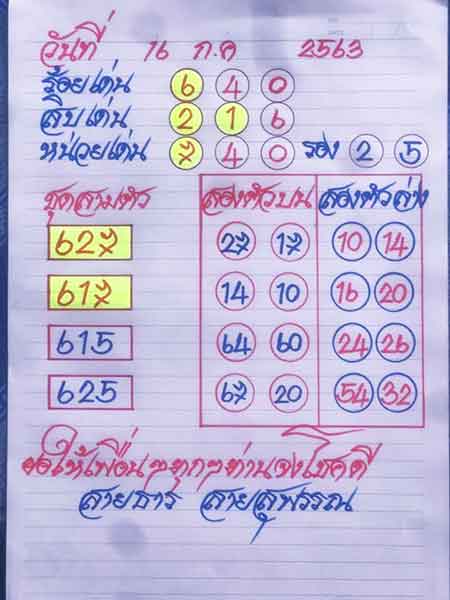 วันที่ 16 ก.ค 2563
ร้อยเด่น 6 4 0
สิบเด่น 2 1 6
หน่วยเด่น 7 4 0 รอง 2 5
ชุดสามตัว สองตัวบน สองตัวล่าง
627 27 17 10 14
617 14 10 16 20
615 64 60 24 26
625 67 20 54 32
ขอให้เพื่อนๆทุกๆท่านจงโชคดี
สายธาร สายสุพรรณ